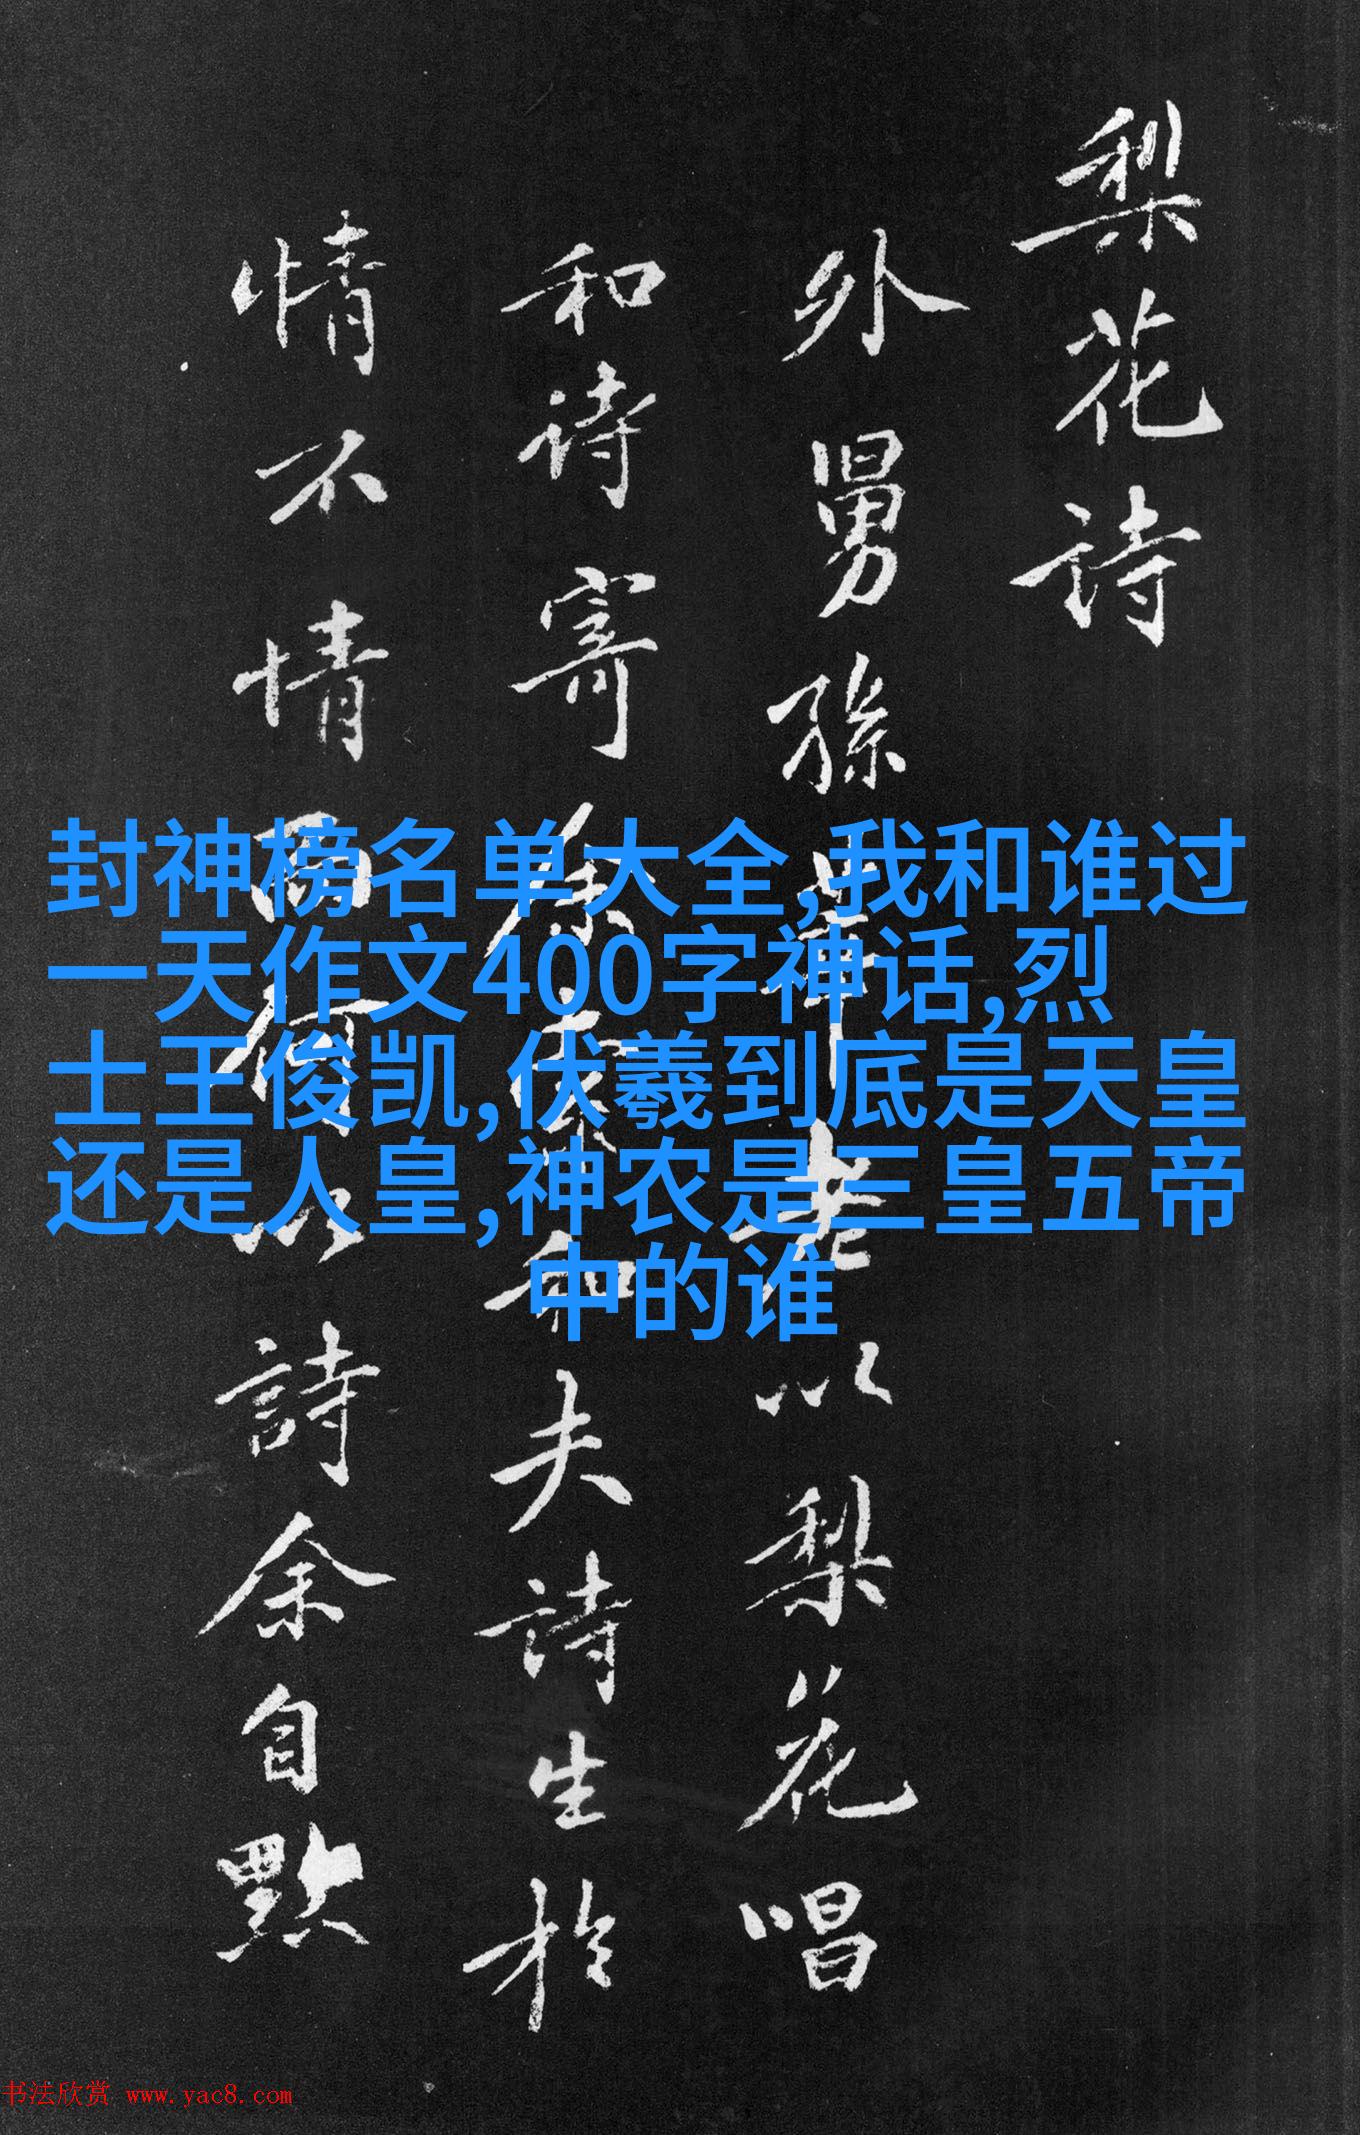 梨花诗
外舅孫莘老以梨花唱
和诗寄余余和夫诗生於
情不情而何以詩余自點
封神榜名单大全,我和谁过
一天作文400字神话,烈
士王俊凯,伏羲到底是天皇
还是人皇,神农是三皇五帝
中的谁
书法欣赏 www.yac8.com